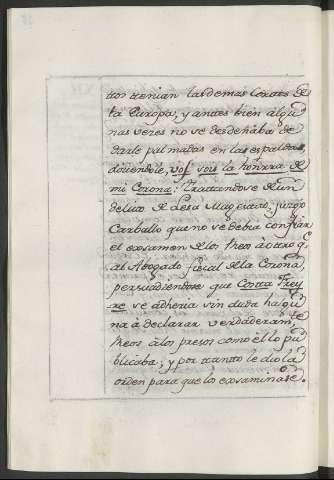 tros tenian las demas Cortes de
la Europa, y antes bien algu
nas veces no se desdeñaba de
darle palmadas en las espaldas,
diciendole, vos sois la honrra de
mi Corona: Trattandose de un
delito de Lesa Magestad, juzgo
Carballo que no se debia confiar
el exsamen de los Reos à otro q.
al Abogado fiscal de la Corona,
persuadiendose que Costa Frey
re se adheria sin duda ha
à declarar verdaderam.te
Reos à los presos como el lo pu
blicaba; y por tanto le dio la
orden para que los exsaminase.